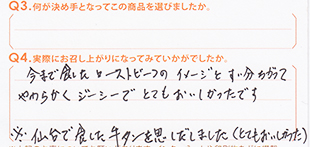 Q3.何が決め手となってこの商品を選びましたか。
Q4.実際にお召し上がりになってみていかがでしたか。
今まで食したローストビーフのイメージとずい分ちがって
やわらかくジーシーでとてもおいしかったです
※仙台で食した牛タンを思いだしました(とてもおいしかった)